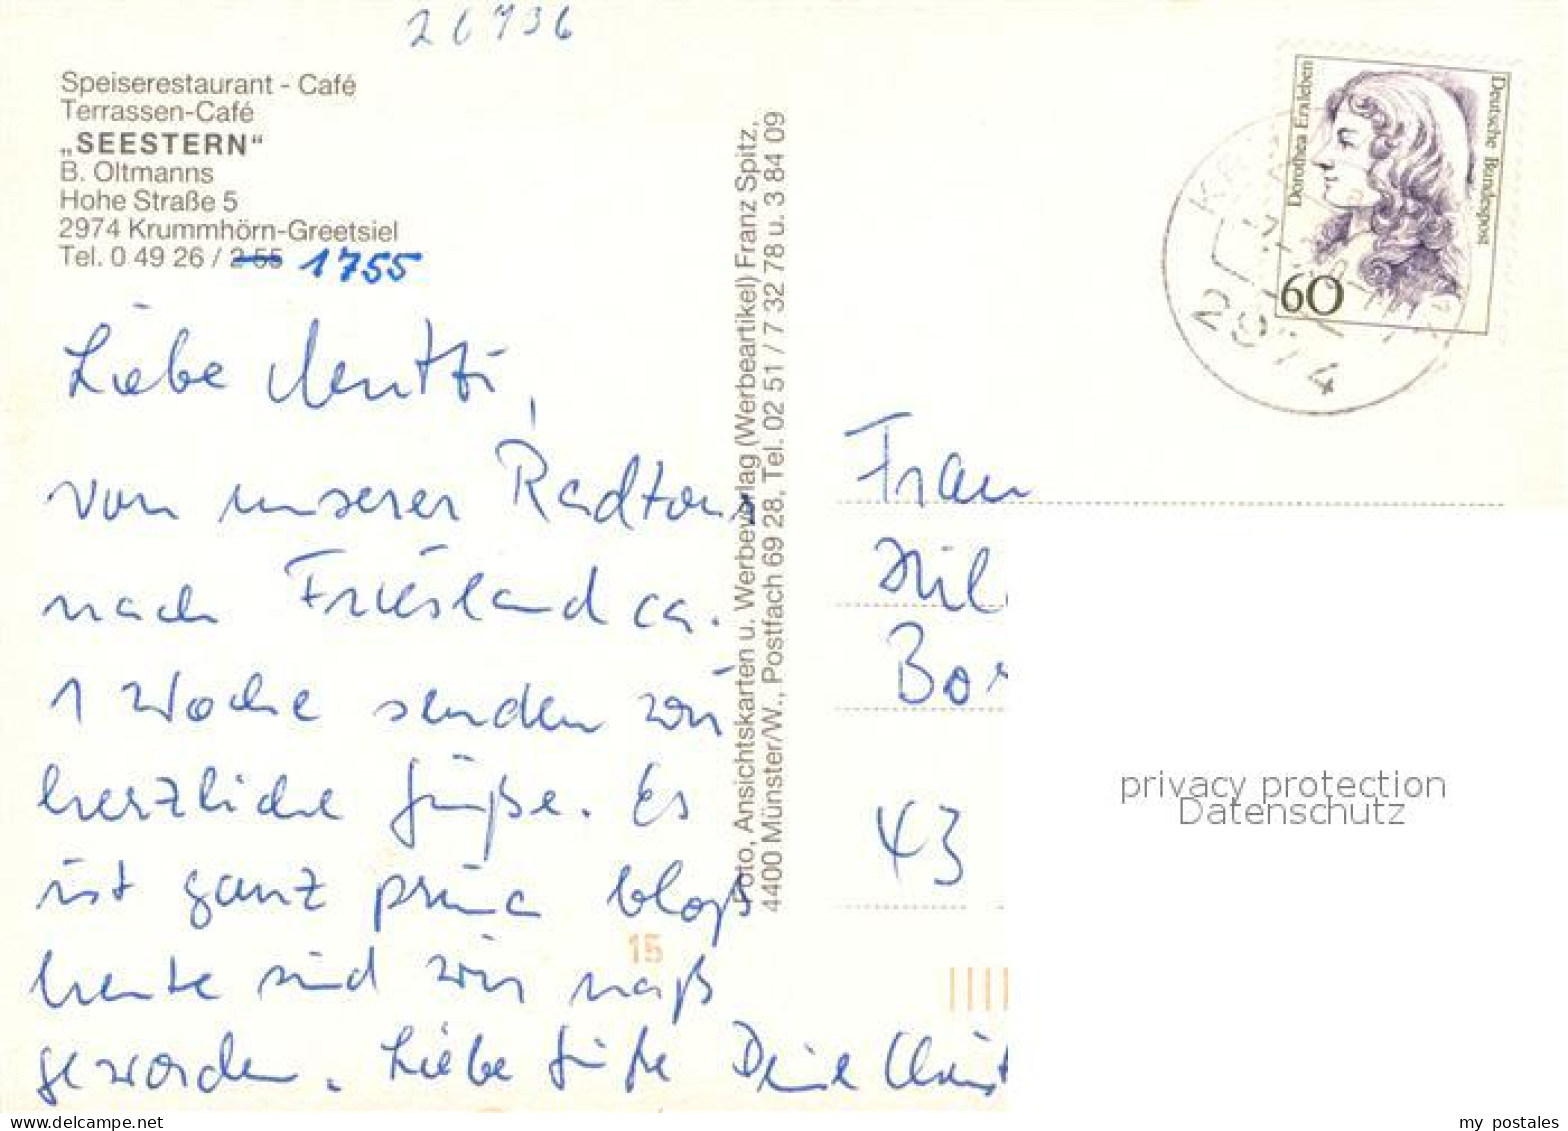 26736
Speiserestaurant - Café
Terrassen-Café
„SEESTERN“
B. Oltmanns
Hohe Straße 5
2974 Krummhörn-Greetsiel
Tel. 0 49 26 / 2 55 1755
Liebe Mutti,
von unserer Radtour
nach Friesland ca.
1 Woche senden wir
herzliche Grüße. Es
ist ganz prima bloß
heute sind wir naß
geworden. Liebe Grüße Deine
Foto, Ansichtskarten u. Werbeverlag (Werbeartikel) Franz Spitz,
4400 Münster/W., Postfach 69 28, Tel. 02 51 / 7 32 78 u. 3 84 09
15
Dorothea Erxleben
Deutsche Bundespost
60
2974
Frau
43
privacy protection
Datenschutz
delcampe.net
my postales